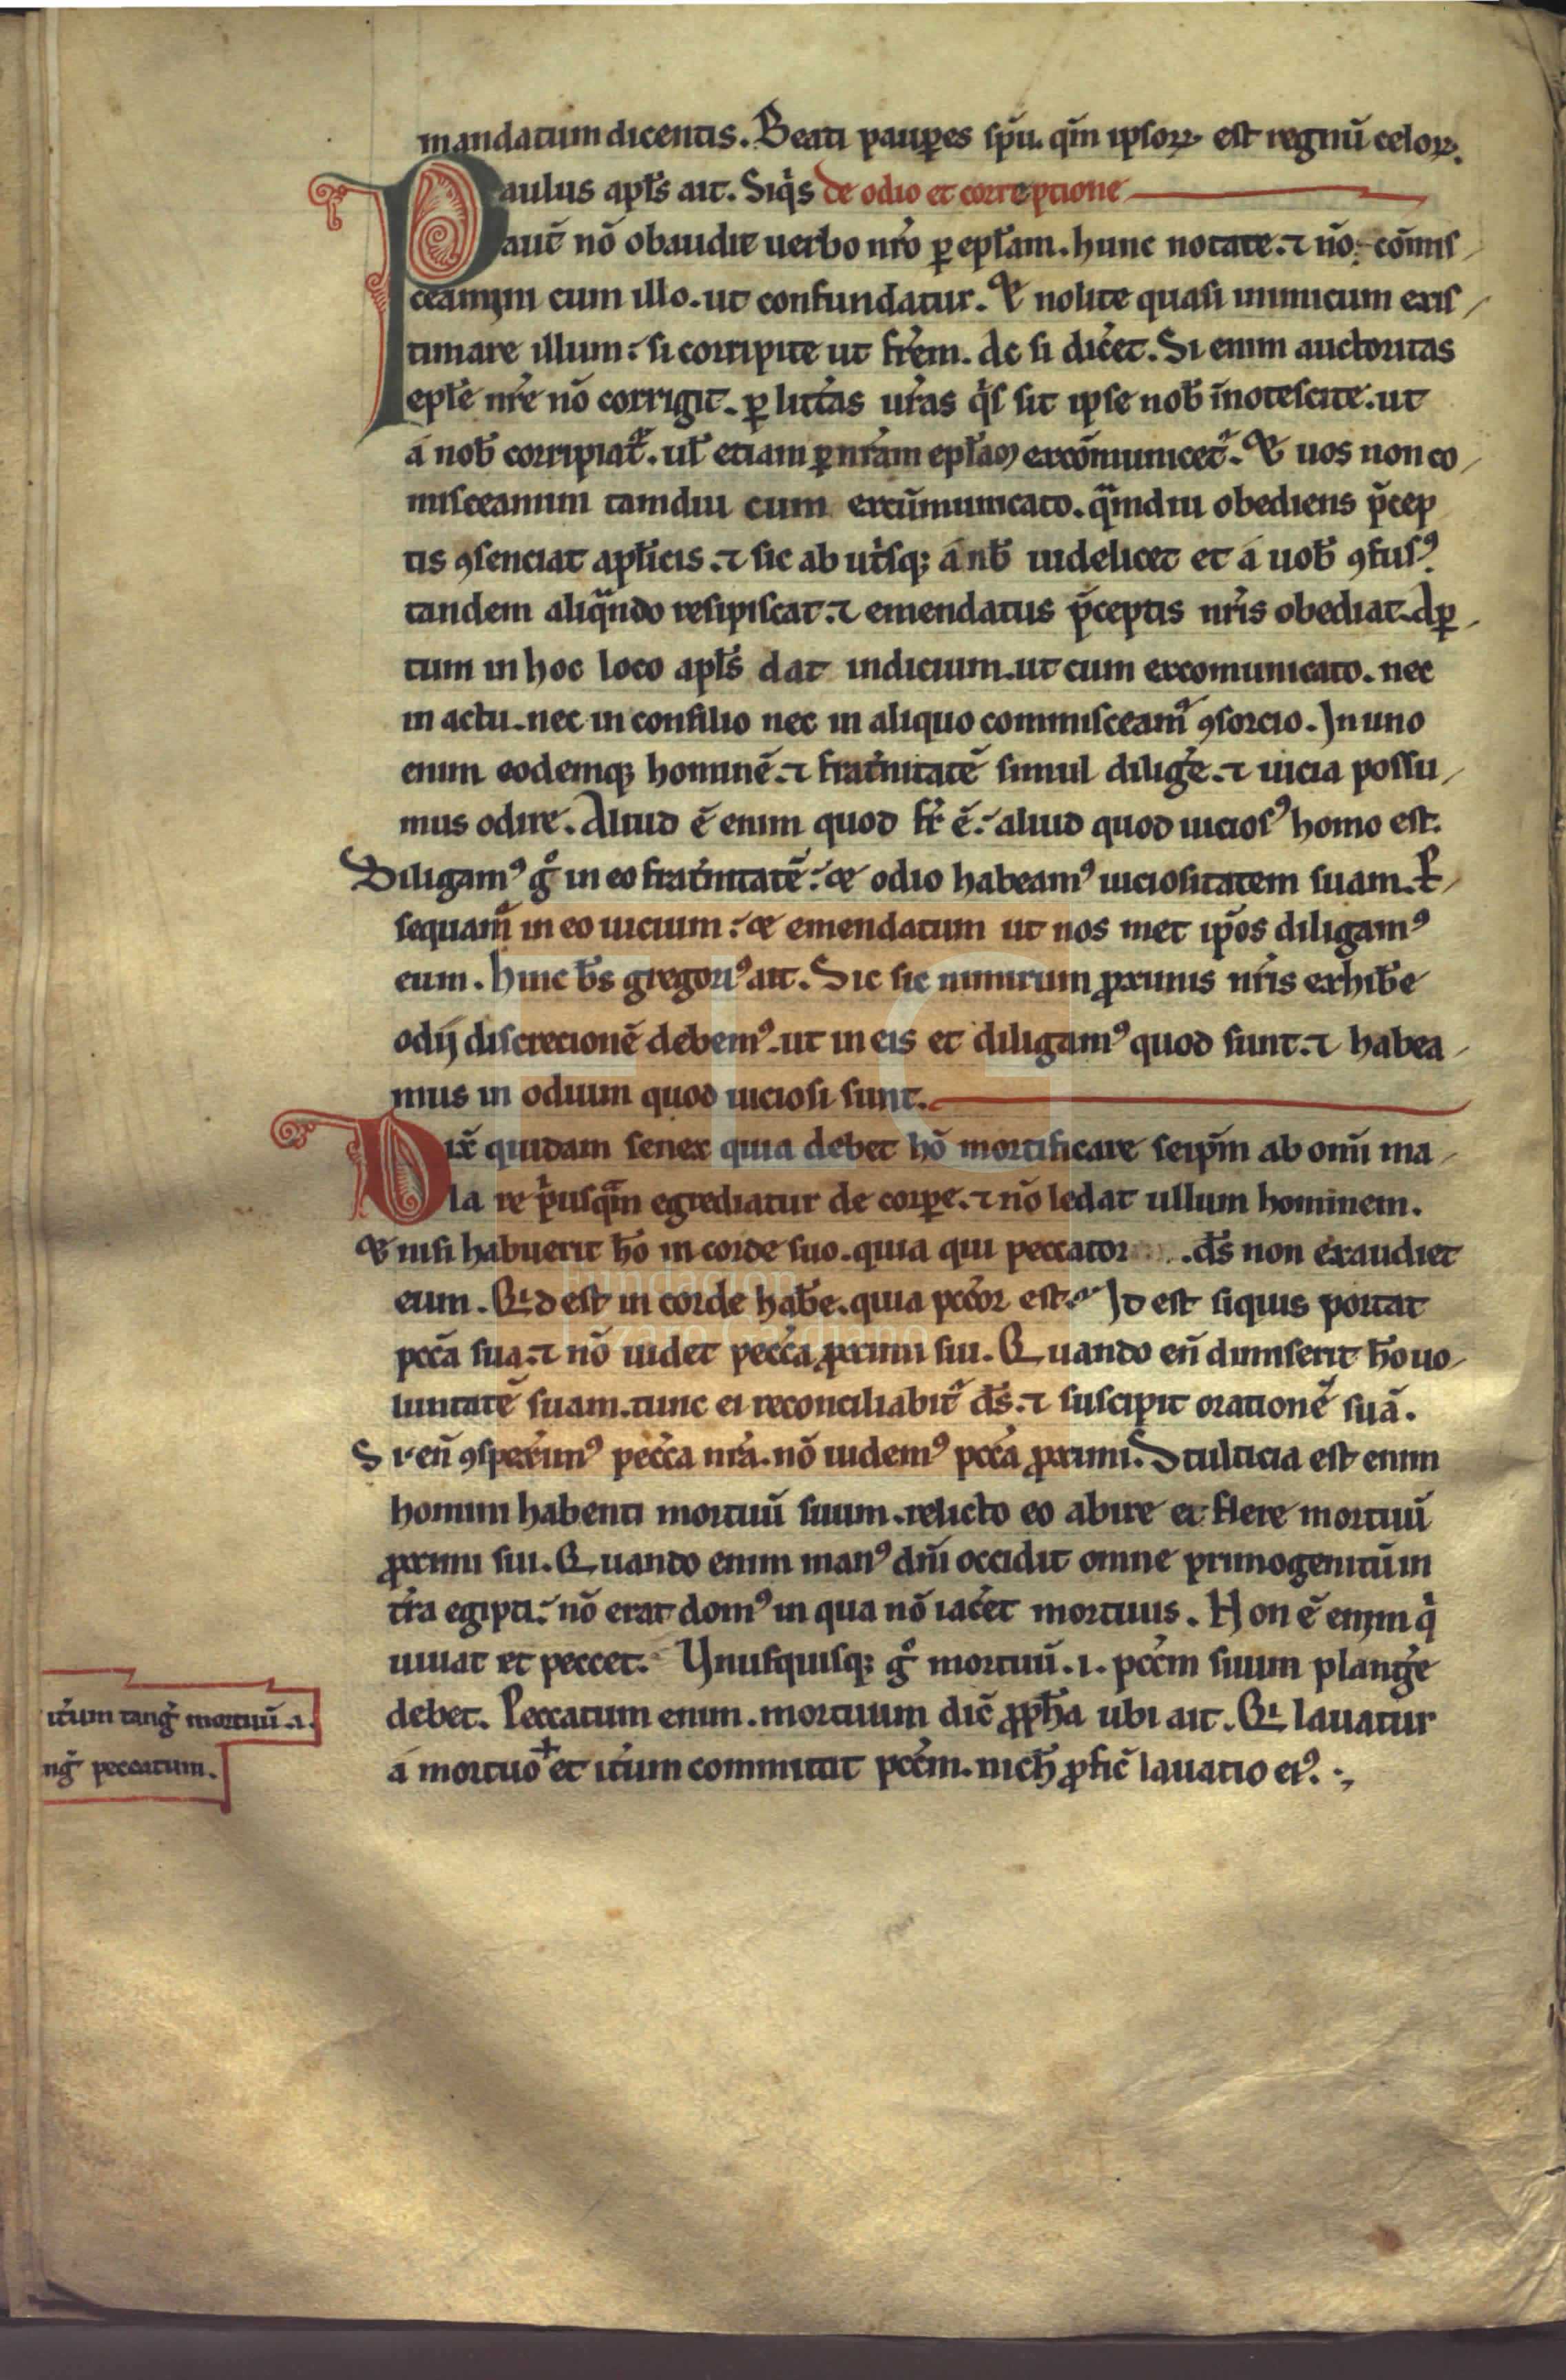 mandatum dicentis. Beati paup̱es sp̄u. qm̄ ipsoꝝ est regnū celoꝝ.
Paulus apl̄s ait. Siq̍s de odio et correptione
autē nō obaudit uerbo nr̄o ꝑ epl̄am. hunc notate. ⁊ nō cōmis
ceamini cum illo. ut confundatur. Et nolite quasi inimicum exis
timare illum: si corripite ut fr̄em. ac si dic̄et. Si enim auctoritas
epl̄e nr̄e nō corrigit. ꝑ litt̄as ur̄as q̍s sit ipse nob̄ īnotescite. ut
a nob̄ corripiat᷑. ul̄ etiam ꝑ nr̄am epl̄am excōmunicet᷑. Et uos non co
misceamini tamdiu cum excūmunicato. qᵃmdiu obediens p̄cep
tis ꝯsenciat apl̄icis. ⁊ sic ab ut̍sqꝫ a nb̄ uidelicet et a uob̄ ꝯfusꝰ
tandem aliqᵃndo resipiscat. ⁊ emendatus p̄ceptis nr̄is obediat. Aꝑ
tum in hoc loco apl̄s dat indicium. ut cum excomunicato. nec
in actu. nec in consilio nec in aliquo commisceam᷑ ꝯsorcio. In uno
enim eodemqꝫ hominē. ⁊ frat̄nitatē simul diliḡe. ⁊ uicia possu
mus odire. Aliud ē enim quod fr̄ ē: aliud quod uiciosꝰ homo est.
Diligamꝰ gͦ in eo frat̄nitatē: et odio habeamꝰ uiciositatem suam. P̱
sequam᷑ in eo uicium: et emendatum ut nos met ip̄os diligamꝰ
eum. hinc b̄s gregoriꝰ ait. Sic sic nimirum ꝓximis nr̄is exhib̄e
odij discrecionē debemꝰ. ut in eis et diligamꝰ quod sunt. ⁊ habea
mus in odium quod uiciosi sunt.
Dix̄ quidam senex quia debet hō mortificare seip̄m ab omī ma
la re p̍usqᵃm egrediatur de corꝑe. ⁊ nō ledat ullum hominem.
Et nisi habuerit h̄o in corde suo. quia qui peccator . d̄s non exaudiet
eum. Qid est in corde hab̄e. quia pcc̄or est. Id est siquis portat
pcc̄a sua. ⁊ nō uidet pecc̄a ꝓximi sui. Quando en̄ dimiserit h̄o uo
luntatē suam. tunc ei reconciliabit᷑ d̄s. ⁊ suscipit orationē suā.
Si en̄ ꝯspexim̄ꝰ pecc̄a nr̄a. nō uidemꝰ pcc̄a ꝓximi. Stulticia est enim
homini habenti mortuū suum. relicto eo abire et flere mortuū
ꝓximi sui. Quando enim manꝰ dn̄i occidit omne primogenitū in
t̄ra egipti: nō erat domꝰ in qua nō iac̄et mortuus. Non ē enim q̍
uiuat et peccet. Vnusquisqꝫ gͦ mortuū .i. pcc̄m suum planḡe
debet. Peccatum enim. mortuum dic̄ ꝓph̄a ubi ait. Qi lauatur
a mortuo + et it̄um committit pcc̄m. nich̄ ꝓfic̄ lauatio eiꝰ.
it̄um tang̍ mortuū .i.
ng̍ peccatum.
Fundación
Lázaro Galdiano
FLG